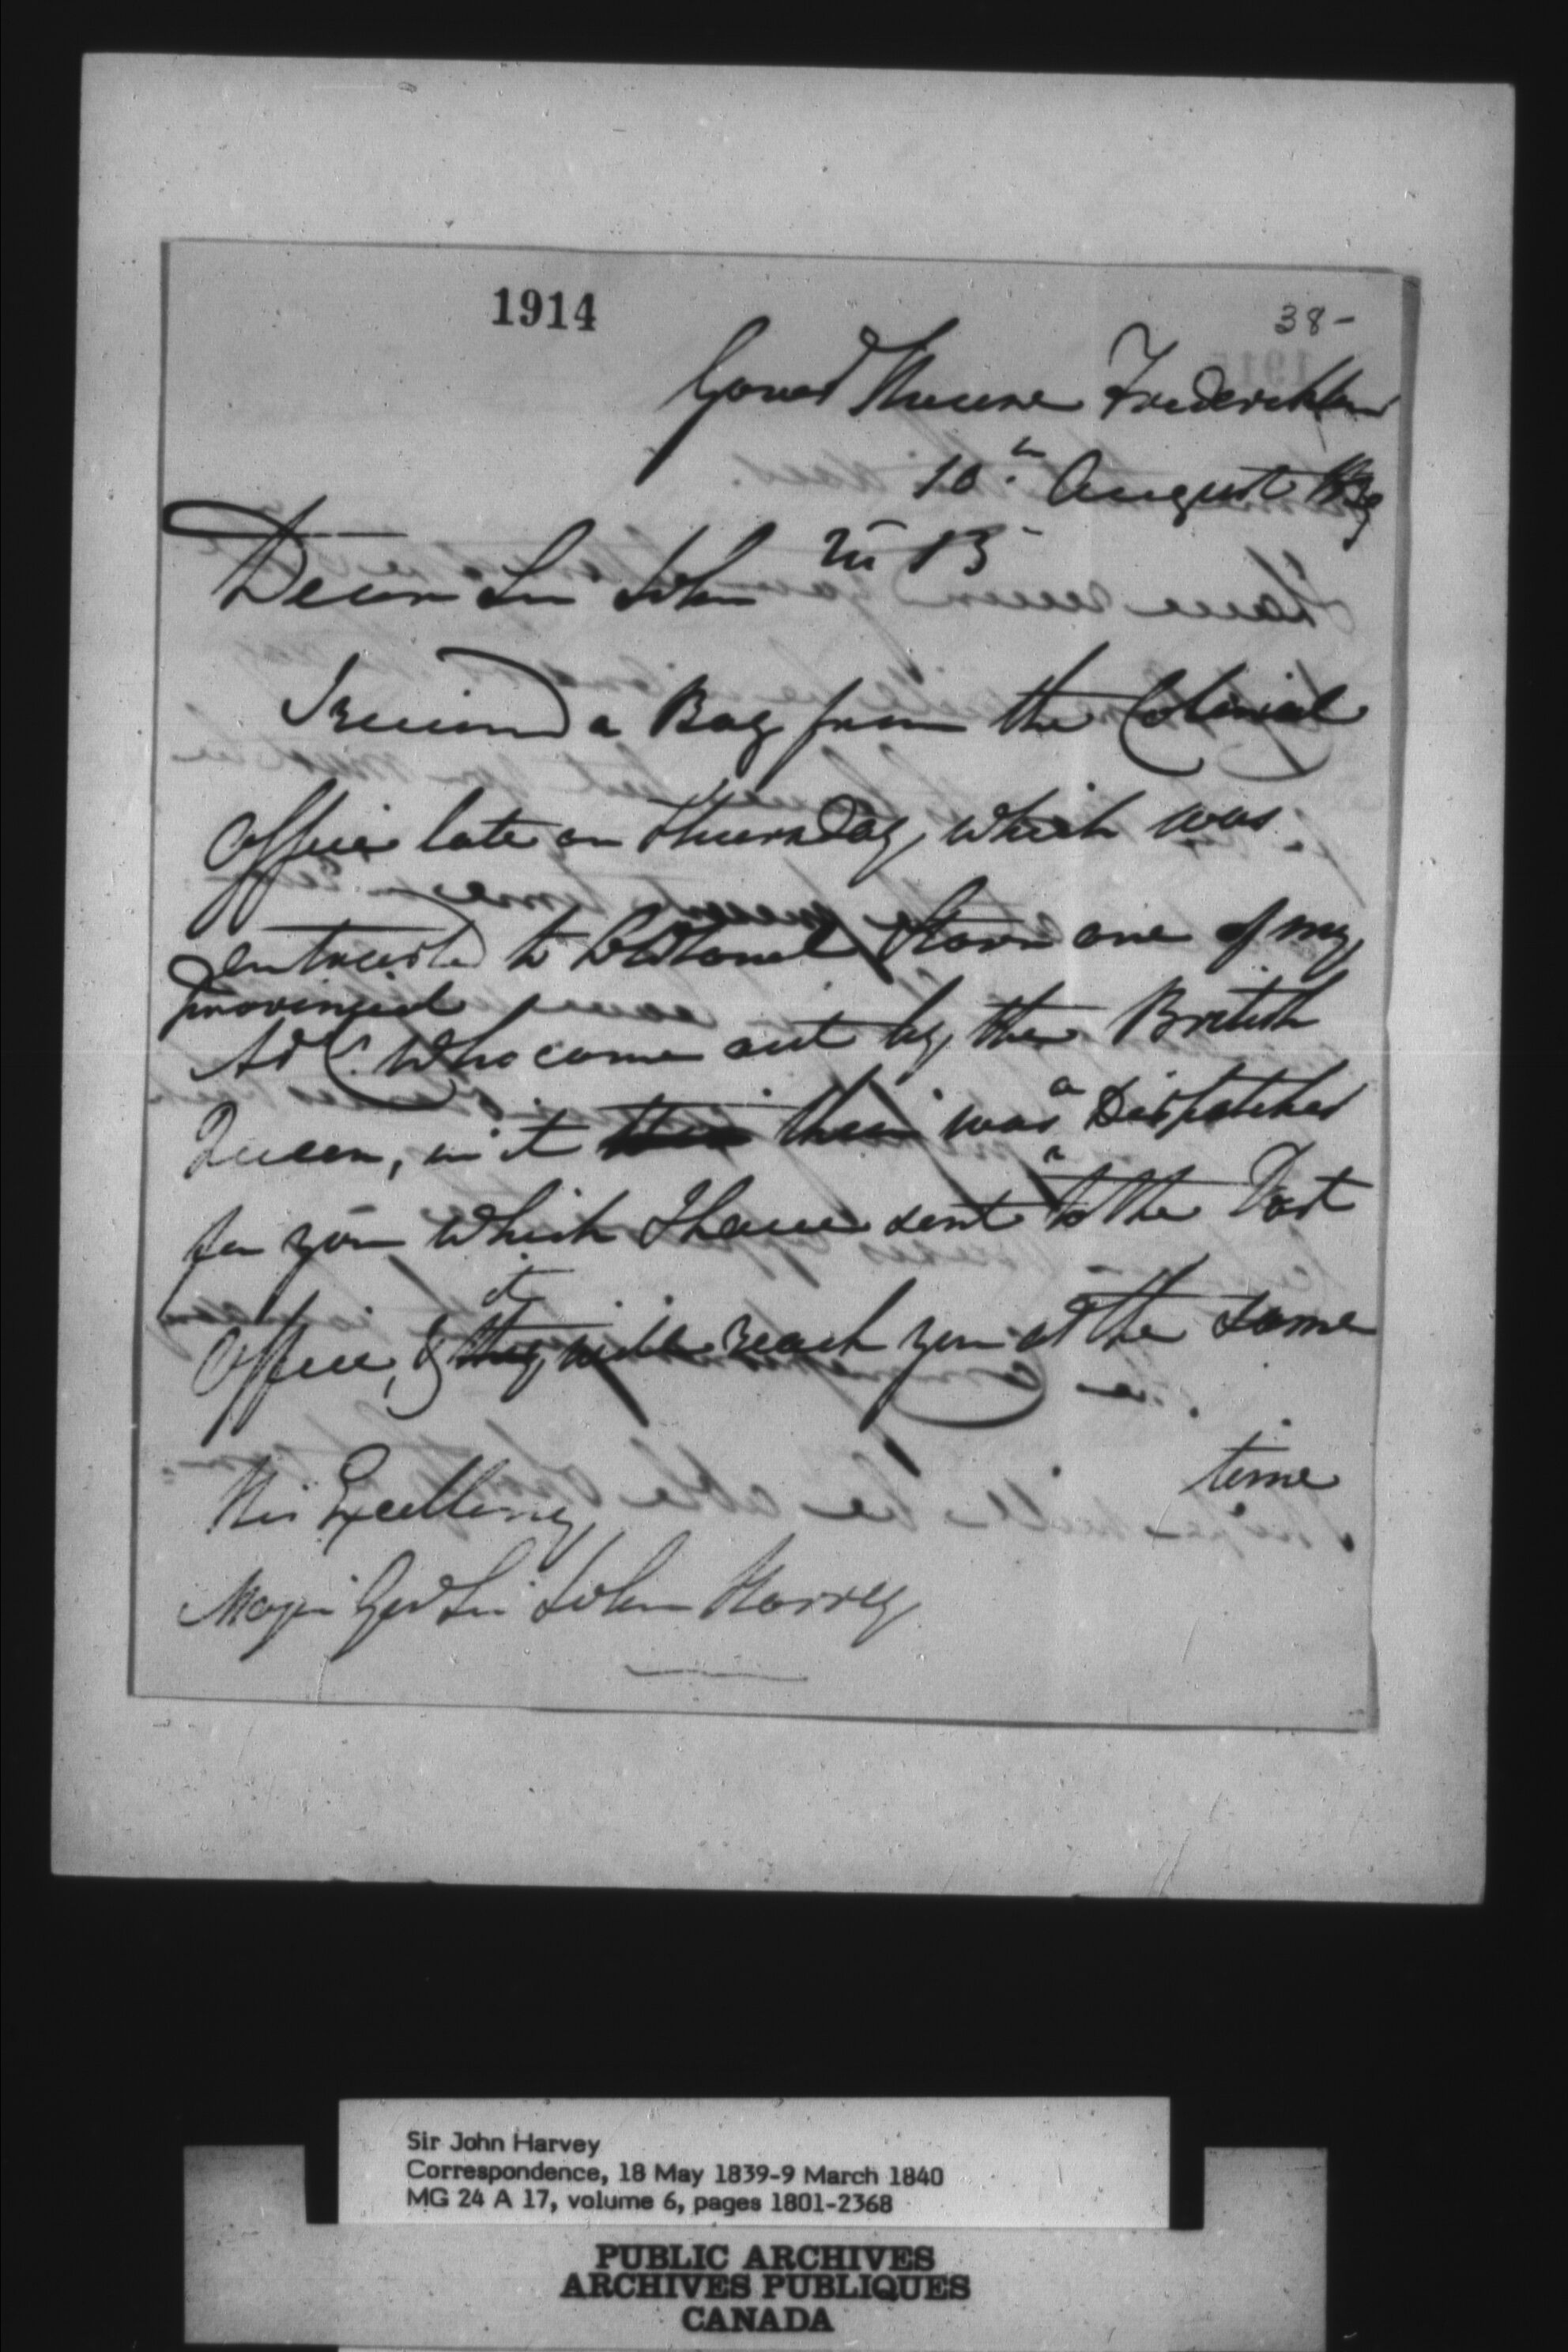 1914
38-
House Fredericton
10th August 1839
Dear Sir John
I received a Bag from the Colonial
Office late on Thursday, which was
entrusted to Colonel one of my
provincial
AdC. who came out by the British
Queen, in it was a Dispatches
for you which I have sent to the Post
it
Office, & they will reach you at the same
time
His Excellency
Major Genl Sir John Harvey
Sir John Harvey
Correspondence, 18 May 1839-9 March 1840
MG 24 A 17, volume 6, pages 1801-2368
PUBLIC ARCHIVES
ARCHIVES PUBLIQUES
CANADA